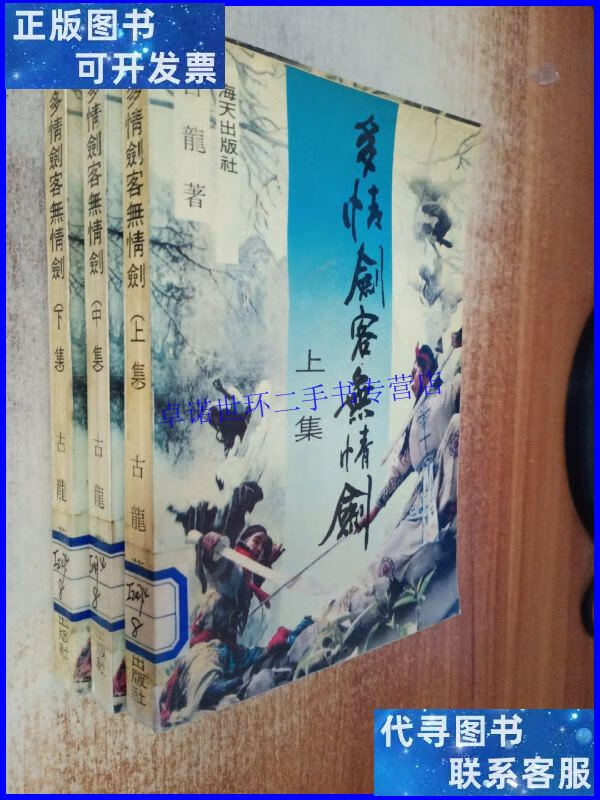 正版图书
可开发票
多情劍客無情劍 (下集) 古龍
出版社
多情劍客無情劍 (中集) 古龍
出版社
多情劍客無情劍 (上集) 古龍著
出版社
海天出版社
古龍著
多情劍客無情劍
上集
卓诺世环二手书专营店
8
8
8
代寻图书
联系客服